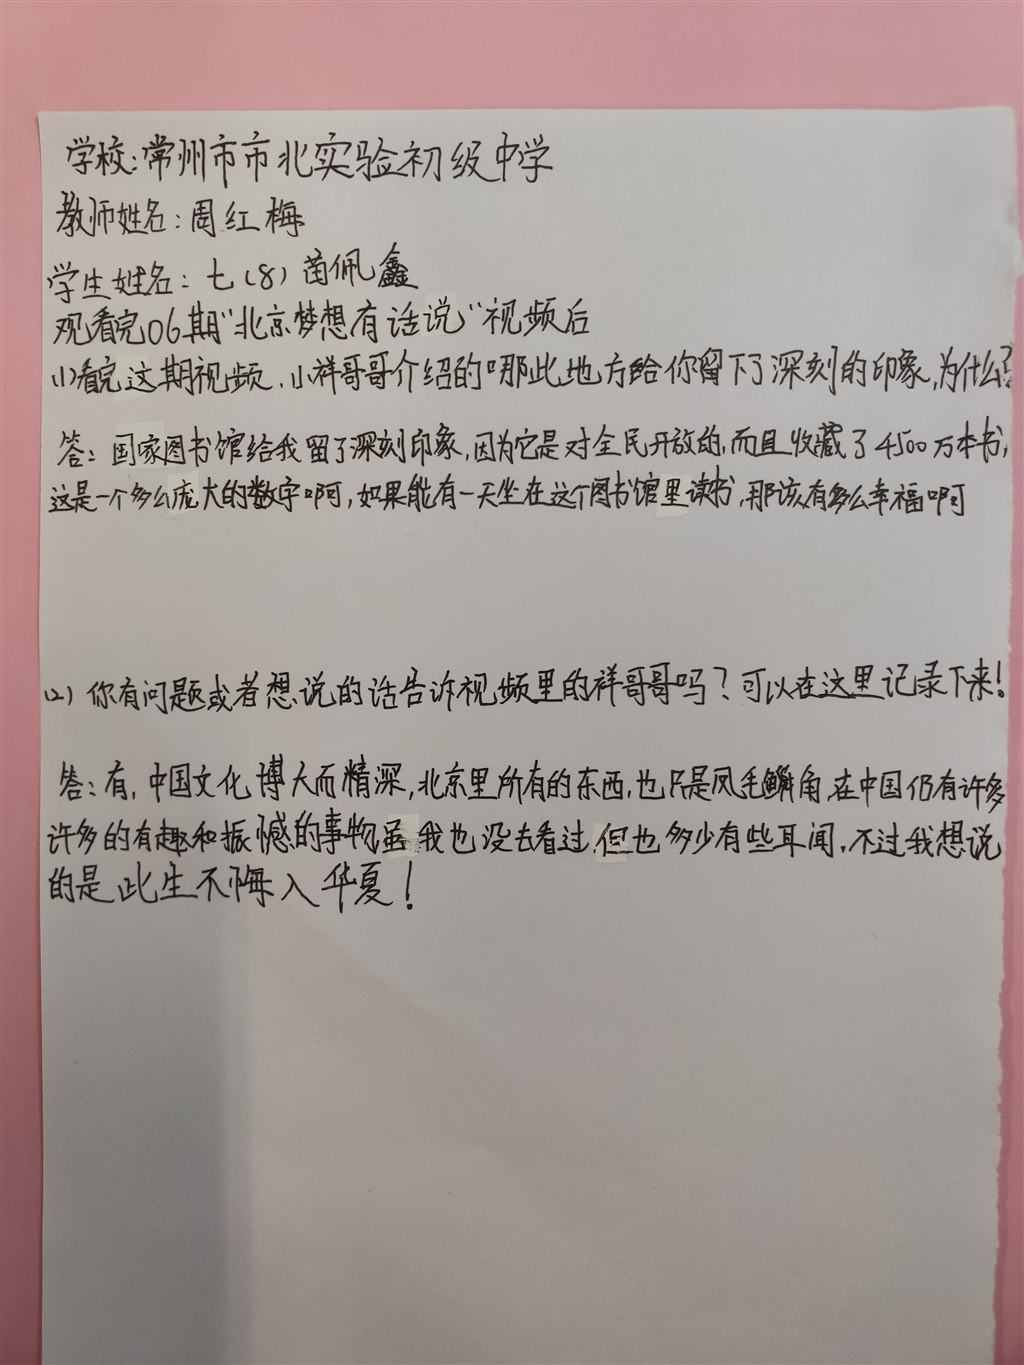 学校:常州市市北实验初级中学
教师姓名:周红梅
学生姓名:七(8)苗佩鑫
观看完06期“北京梦想有话说”视频后
(1)看完这期视频,小祥哥哥介绍的哪些地方给你留下了深刻的印象,为什么?
答:国家图书馆给我留了深刻印象,因为它是对全民开放的,而且收藏了4500万本书,
这是一个多么庞大的数字啊,如果能有一天坐在这个图书馆里读书,那该有多么幸福啊
(2)你有问题或者想说的话告诉视频里的祥哥哥吗?可以在这里记录下来!
答:有,中国文化博大而精深,北京里所有的东西,也只是凤毛麟角,在中国仍有许多
许多的有趣和振憾的事物虽我也没去看过,但也多少有些耳闻,不过我想说
的是此生不悔入华夏!